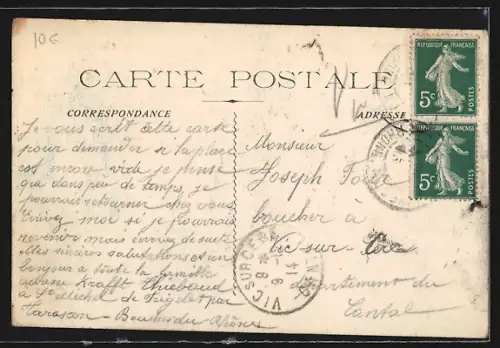 10€
CARTE POSTALE
CORRESPONDANCE
ADRESSE
REPUBLIQUE FRANÇAISE
5c
POSTES
REPUBLIQUE FRANÇAISE
5c
POSTES
Je vous écris cette carte
pour demander si la place
est encore vide je pense
que dans peu de temps, je
pourrais retourner chez vous
Ecrivez moi si je pourrais
revenir mais envoyez de suite
Mes sincères salutations et un
bonjour a toute la famille
adresse Krafft Thiebaud
a St Michel de Frigolet par
Tarascon Bouches du Rhône
Monsieur
Joseph
boucher à
Vic-sur-Cère
Département du
Cantal
VIC SUR CERE
9
14